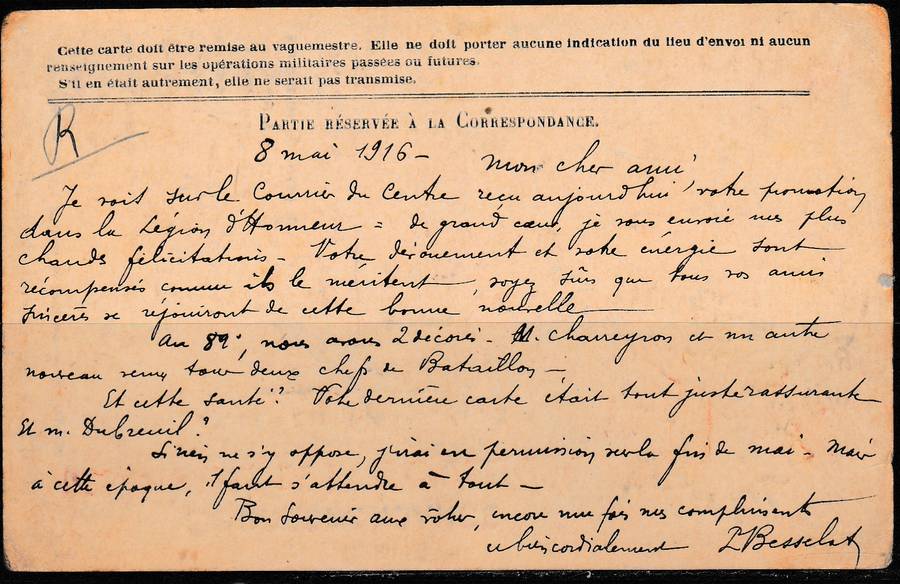 Cette carte doit être remise au vaguemestre. Elle ne doit porter aucune indication du lieu d'envoi ni aucun
renseignement sur les opérations militaires passées ou futures.
S'il en était autrement, elle ne serait pas transmise.
PARTIE RÉSERVÉE À LA CORRESPONDANCE.
R
8 mai 1916 - Mon cher ami
Je vois sur le Courrier du Centre reçu aujourd'hui votre promotion
dans la Légion d'Honneur = de grand cœur, je vous envoie mes plus
chaudes félicitations - Votre dévouement et votre énergie sont
récompensés comme ils le méritent, soyez sûrs que tous vos amis
sincères se réjouiront de cette bonne nouvelle
Au 89e, nous avons 2 décorés - M. Charreyron et un autre
nouveau venu tous deux chefs de Bataillon -
Et cette santé ? Votre dernière carte était tout juste rassurante
Et M. Dubreuil ?
Si rien ne s'y oppose, j'irai en permission vers la fin de mai - Mais
à cette époque, il faut s'attendre à tout -
Bon souvenir aux vôtres, encore une fois mes compliments
et bien cordialement LBesselat